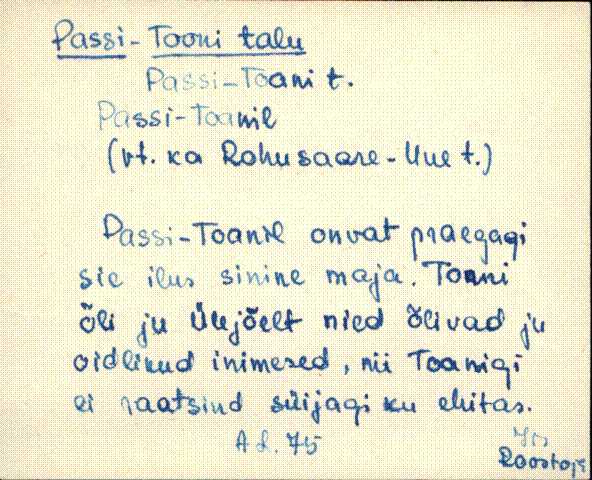 Passi-Tooni talu
Passi-Toani t.
Passi-Toanil
(vt. ka Rohusaare-Uue t.)
Passi-Toanil onvat praegagi
sie ilus sinine maja. Toani
õli ju Üüjõelt nied õlivad ju
oidlikud inimesed, nii Toanigi
ei raatsind süijagi ku ehitas.
A.L. 75
Roostoja